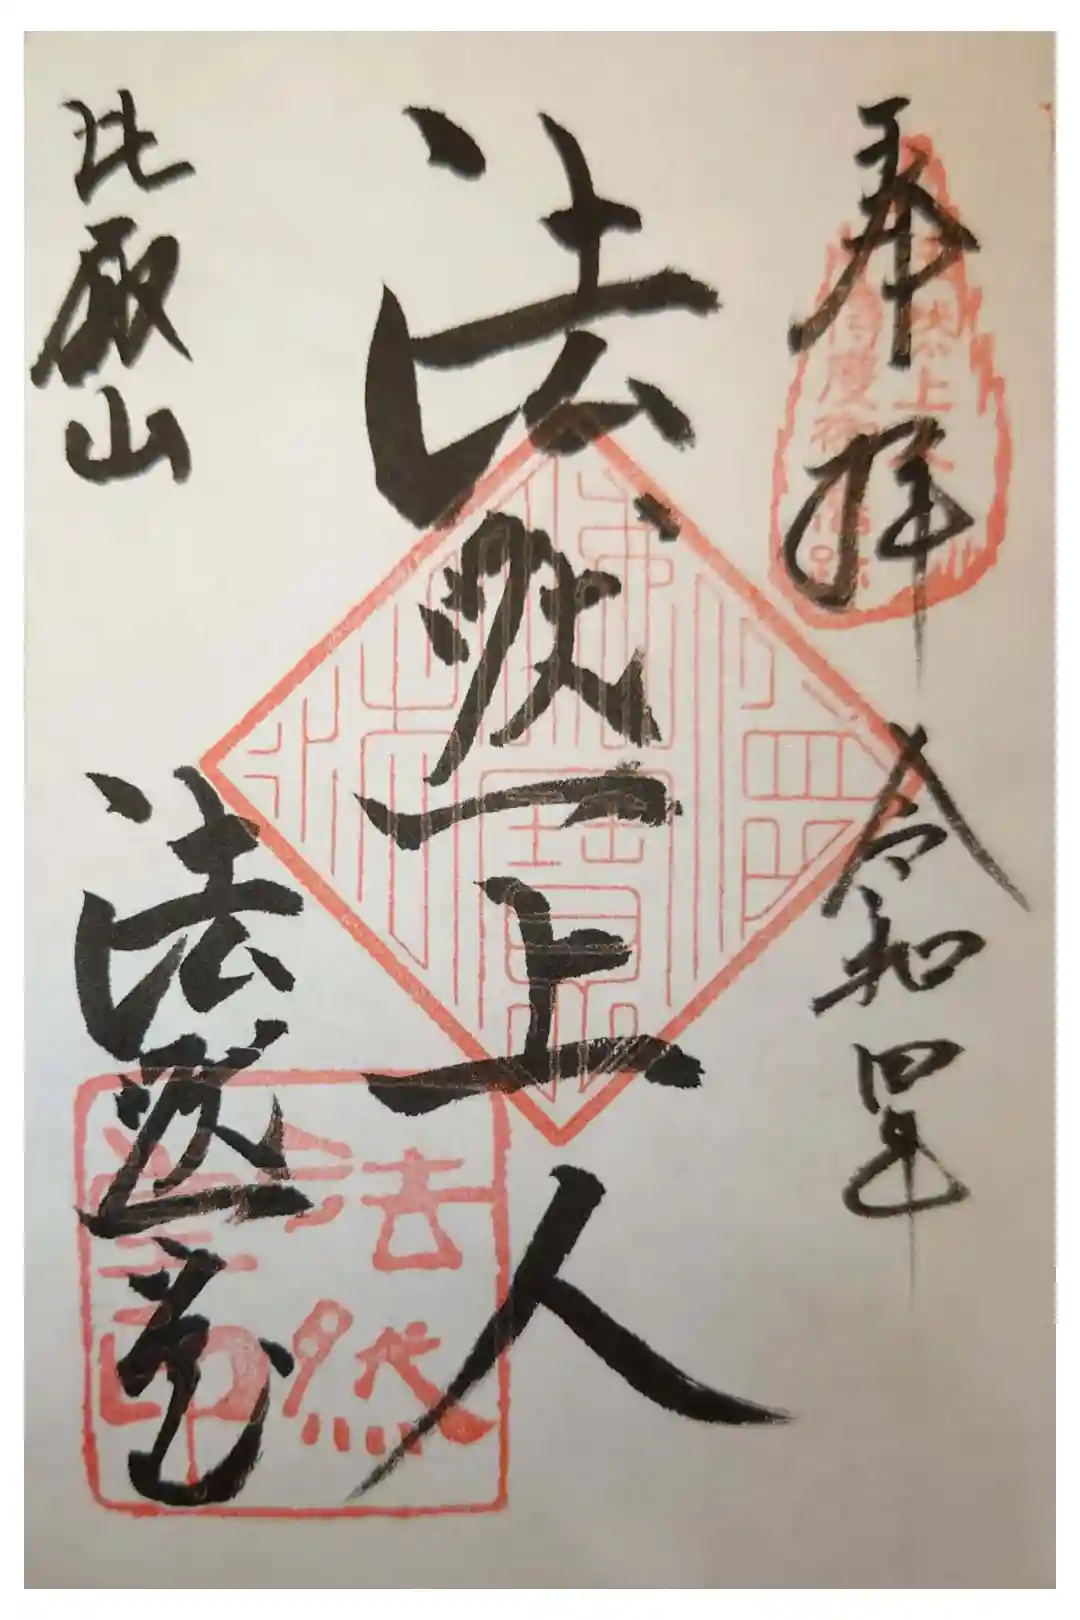 奉拝
令和四年
法然上人
比叡山
法然堂
法然
堂印